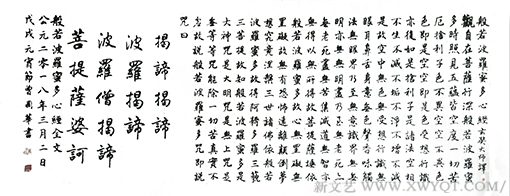 般若波羅蜜多心經 玄奘大師譯
觀自在菩薩行深般若波羅蜜
多時照見五蘊皆空度一切苦
厄捨利子色不異空空不異色
色即是空空即是色受想行識
亦復如是捨利子是諸法空相
不生不滅不垢不淨不增不減
是故空中無色無受想行識無
眼耳鼻舌身意無色聲香味觸
法無眼界乃至無意識界無無
明亦無無明盡乃至無老死亦
無老死盡無苦集滅道無智亦
無得以無所得故菩提薩埵依
般若波羅蜜多故心無罣礙無
罣礙故無有恐怖遠離顛倒夢
想究竟涅槃三世諸佛依般若
波羅蜜多故得阿耨多羅三藐
三菩提故知般若波羅蜜多是
大神咒是大明咒是無上咒是
無等等咒能除一切苦真實不
虛故說般若波羅蜜多咒即說
咒曰
揭諦揭諦
波羅揭諦
波羅僧揭諦
菩提薩婆訶
般若波羅蜜多心經全文
公元二零一八年三月二日
戊戌元宵節曾國華書
新文艺 www.XWYQY.com